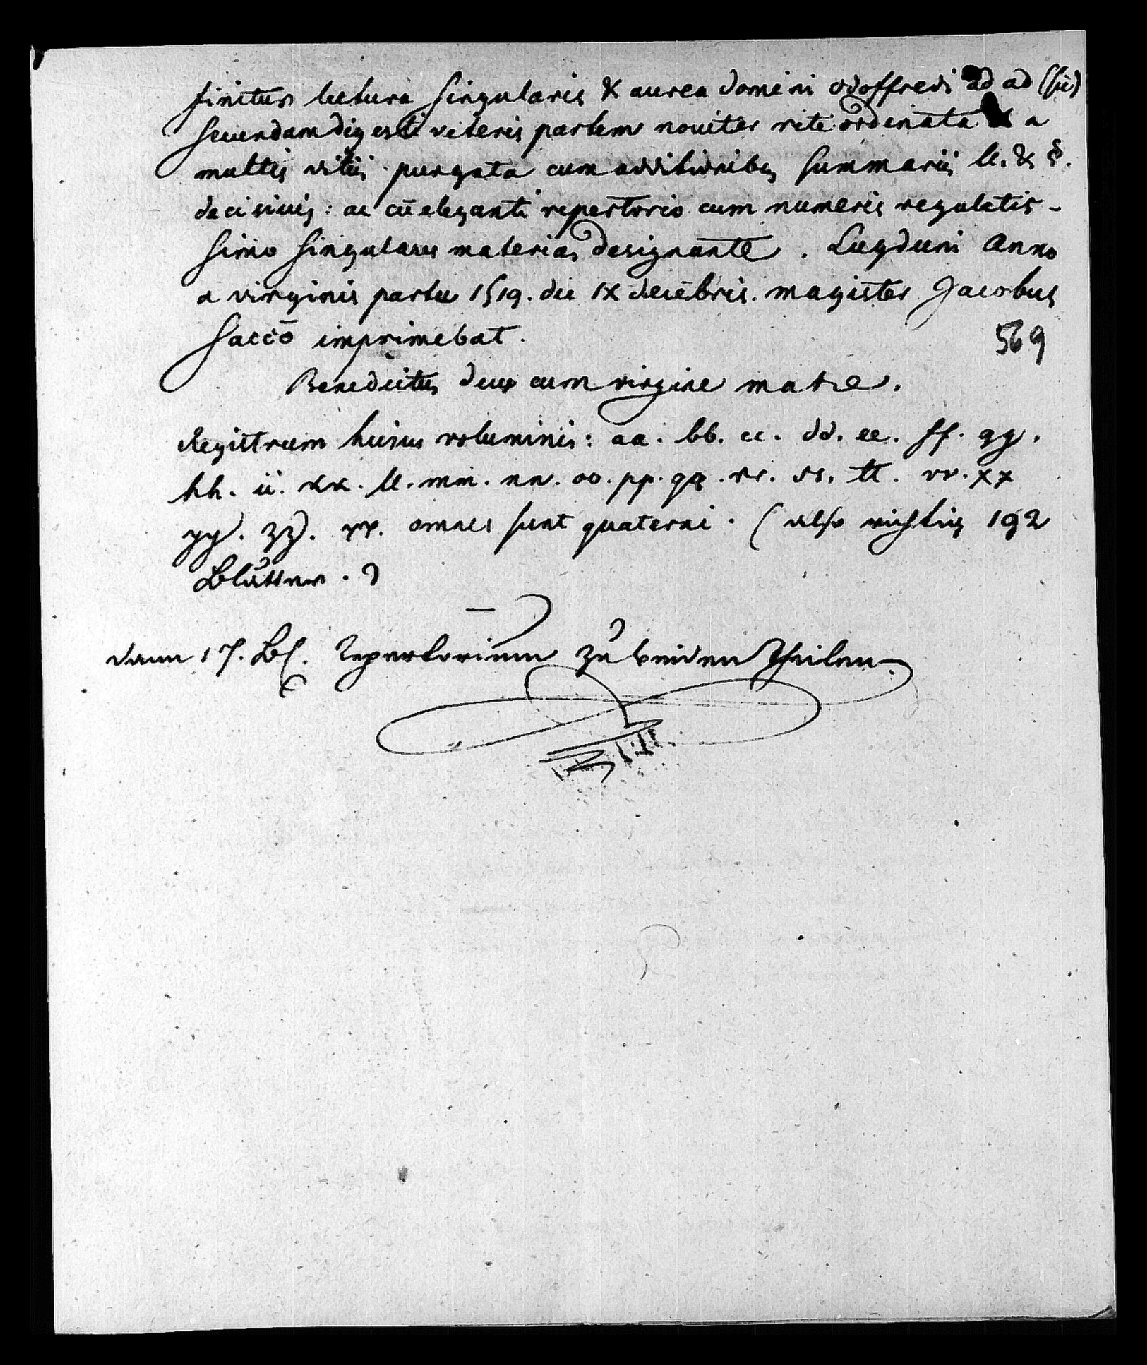 finitur lectura singularis & aurea domini odoffredi ad ad (sic)
secundam digesti veteris partem noviter rite ordinata & a
multis vitiis purgata cum additionibus summariis ll. & §.
decisivis: ac cū eleganti repertorio cum numeris regulatis-
simo singulares materias designante. Lugduni Anno
a virginis partu 1519. die ix decēbris. magister Jacobus
Saccō imprimebat.
569
Benedictus deus cum virgine matre.
Registrum huius voluminis: aa. bb. cc. dd. ee. ff. gg.
hh. ii. kk. ll. mm. nn. oo. pp. qq. rr. ss. tt. vv. xx
yy. zz. omnes sunt quaterni. (also richtig 192
Blätter.)
dann 17. Bl. Repertorium zu beiden Theilen.